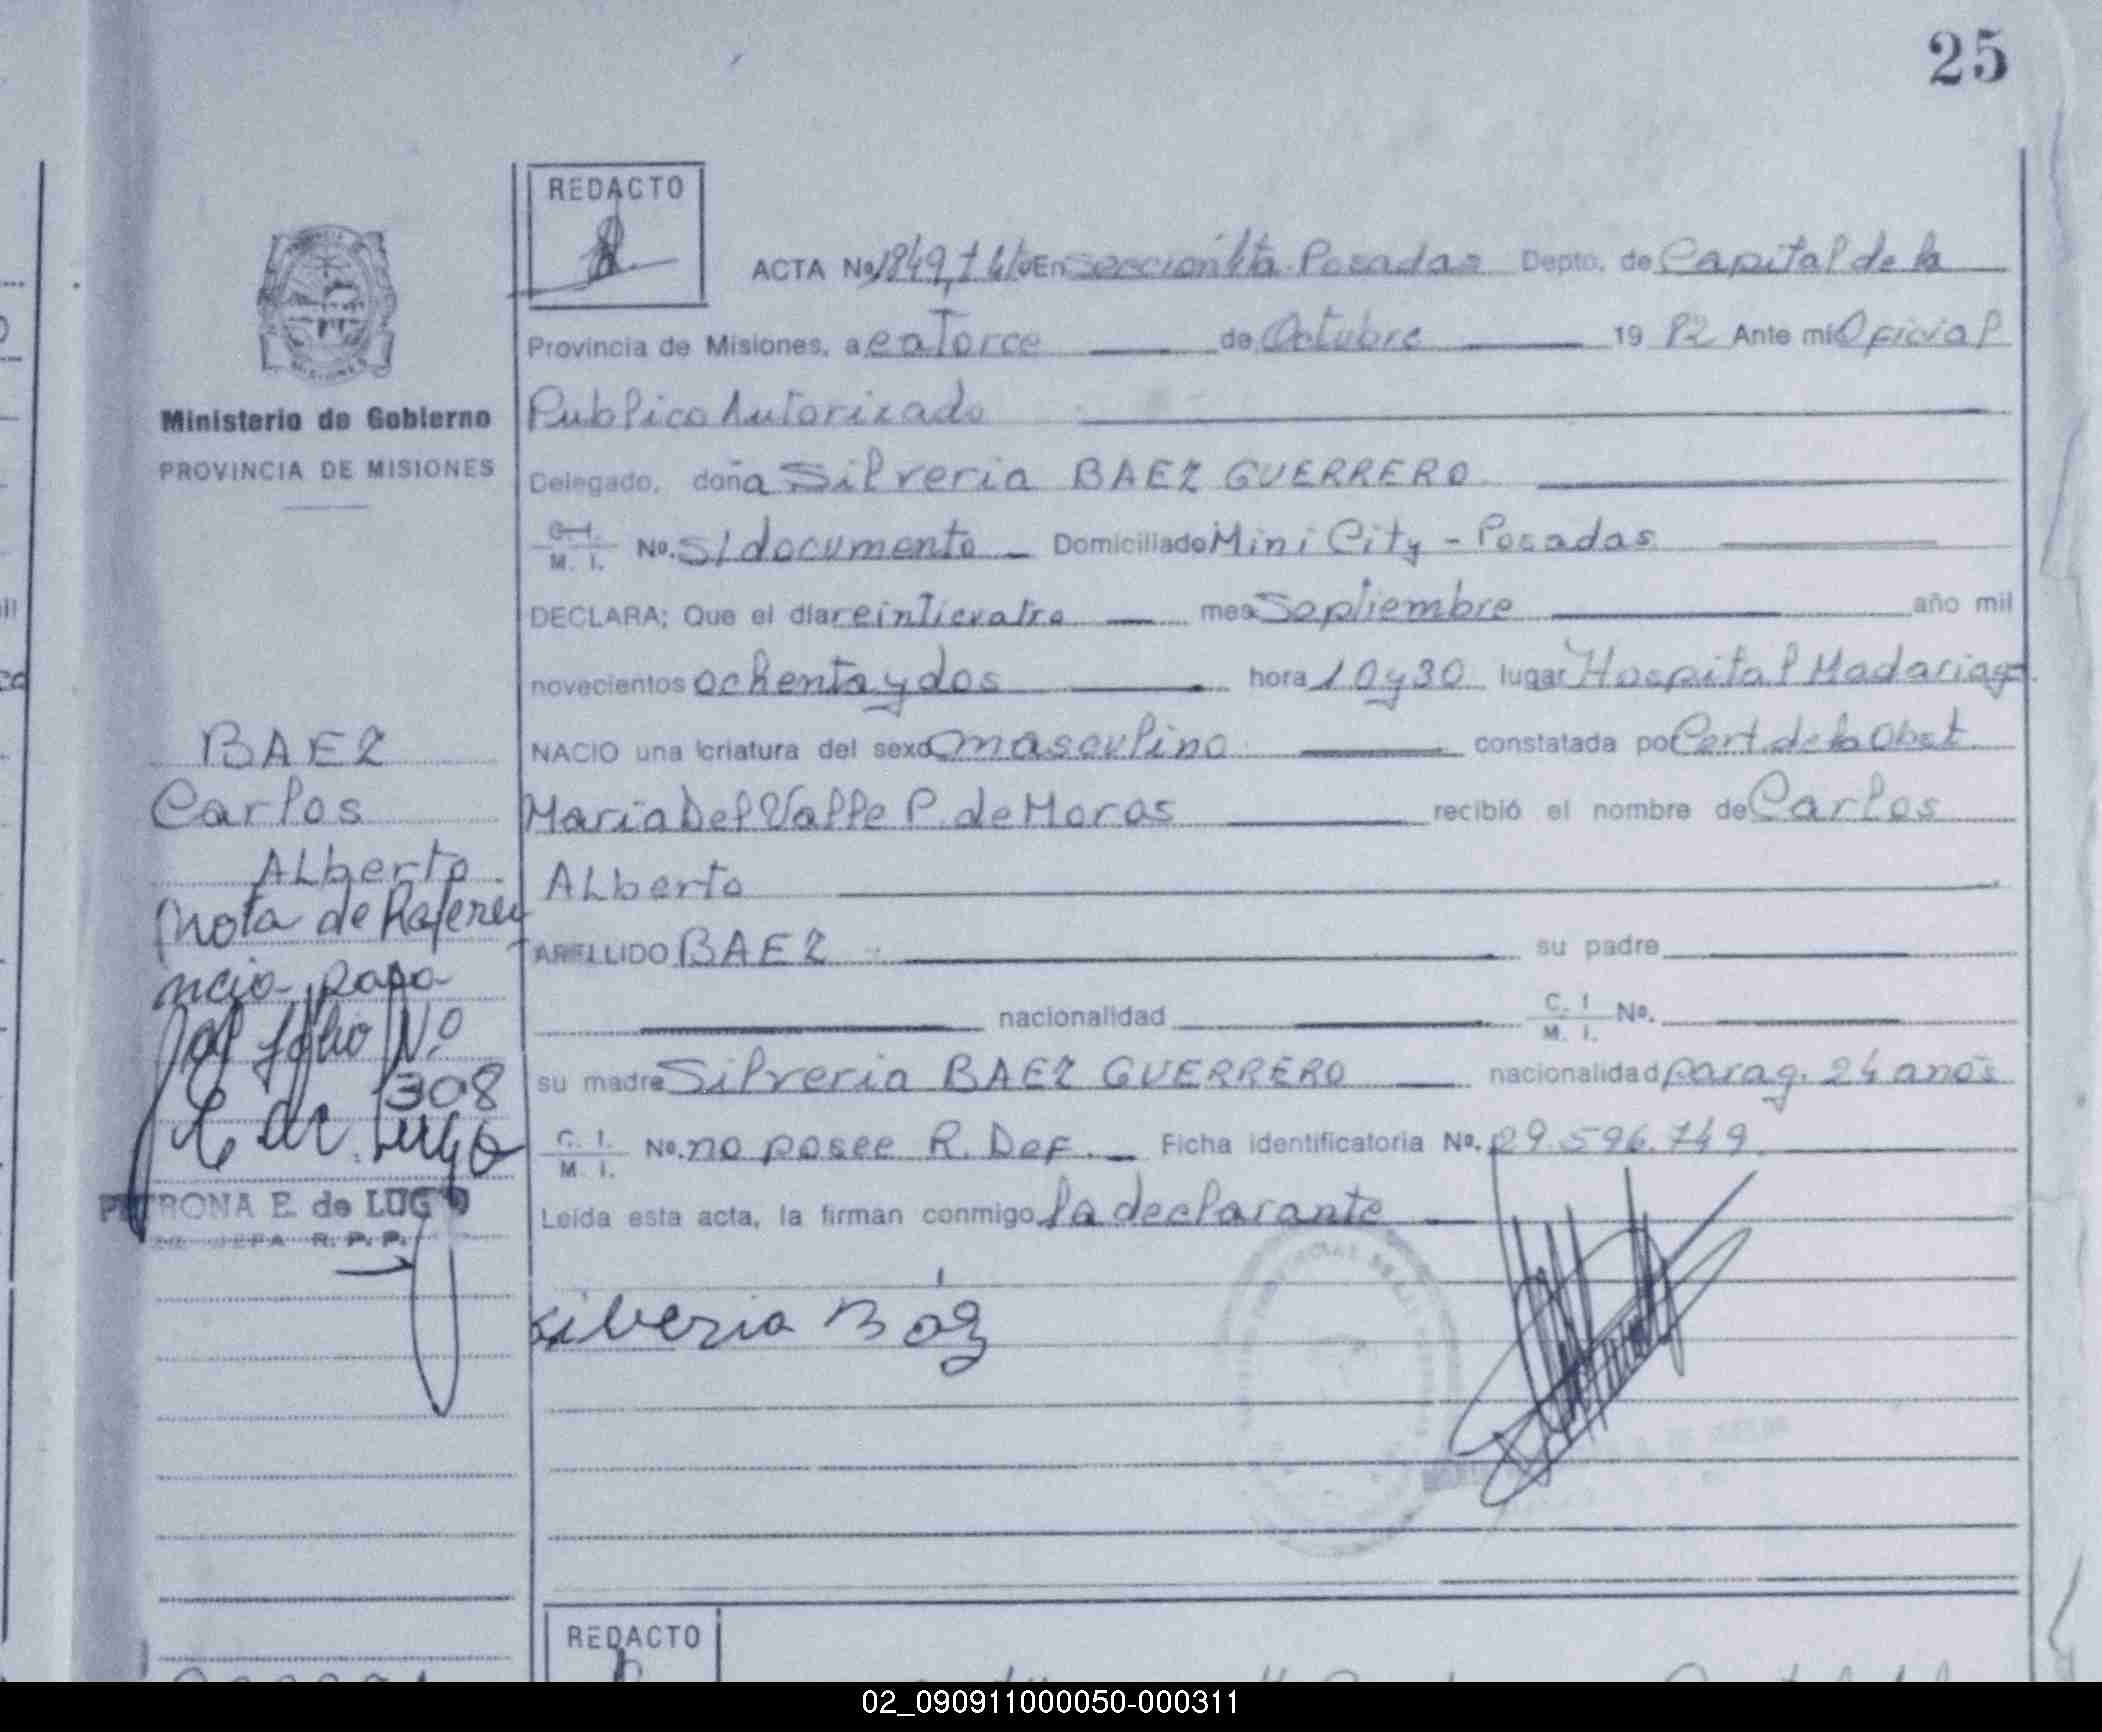 25
REDACTO
ACTA No 1849, t 4/o En sección 4ta Posadas Depto. de Capital de la
Provincia de Misiones, a catorce de Octubre 19 82 Ante mi Oficial
Publico Autorizado
Ministerio de Gobierno
PROVINCIA DE MISIONES
Delegado, doña Silveria BAEZ GUERRERO
C. I. M. I. No. s/documento Domiciliado Mini City - Posadas
DECLARA; Que el día veinticuatro mes Septiembre año mil
novecientos ochenta y dos hora 10 y 30 lugar Hospital Madariaga
NACIO una criatura del sexo masculino constatada por Cert. de la Obst
Maria Del Valle P. de Moros recibió el nombre de Carlos
Alberto
APELLIDO BAEZ su padre
nacionalidad C. I. M. I. No.
su madre Silveria BAEZ GUERRERO nacionalidad parag. 24 anos
C. I. M. I. No. no posee R. Def. Ficha identificatoria No. 29.596.749
Leída esta acta, la firman conmigo la declarante
BAEZ
Carlos
Alberto
nota de Refere
ncia pasa
al folio No
308
PETRONA E. de LUGO
JEFA R. P. P.
Silveria Báz
REDACTO
02_090911000050-000311